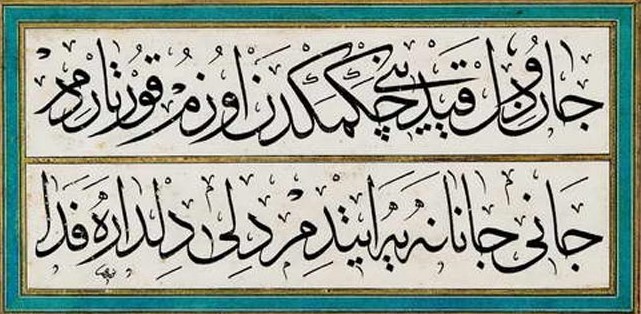 جان و دل قيدينی چكمكدن اوزم قورتاردم
جانی جانانه يه ايتدم دلی دلداره فدا